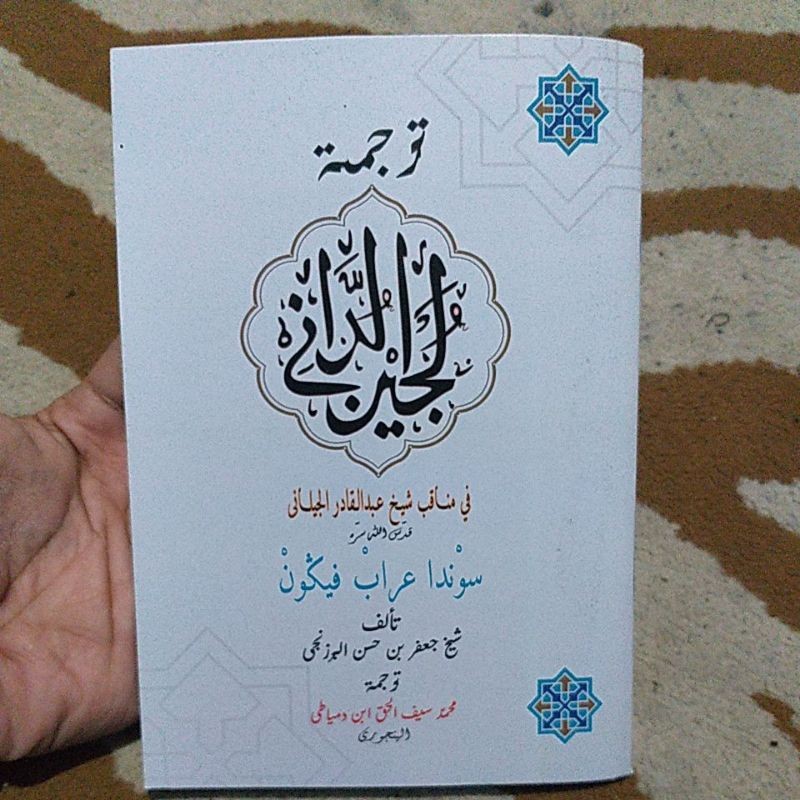 توجمة
لُجَيْنُ الدَّانِي
في مناقب شيخ عبدالقادر الجيلاني
قدّس الله سرّه
سوْندا عرابْ فيݢونْ
تأليف
شيخ جعفر بن حسن البرزنجي
توجمة
محمد سيف الحق ابن دمياطي